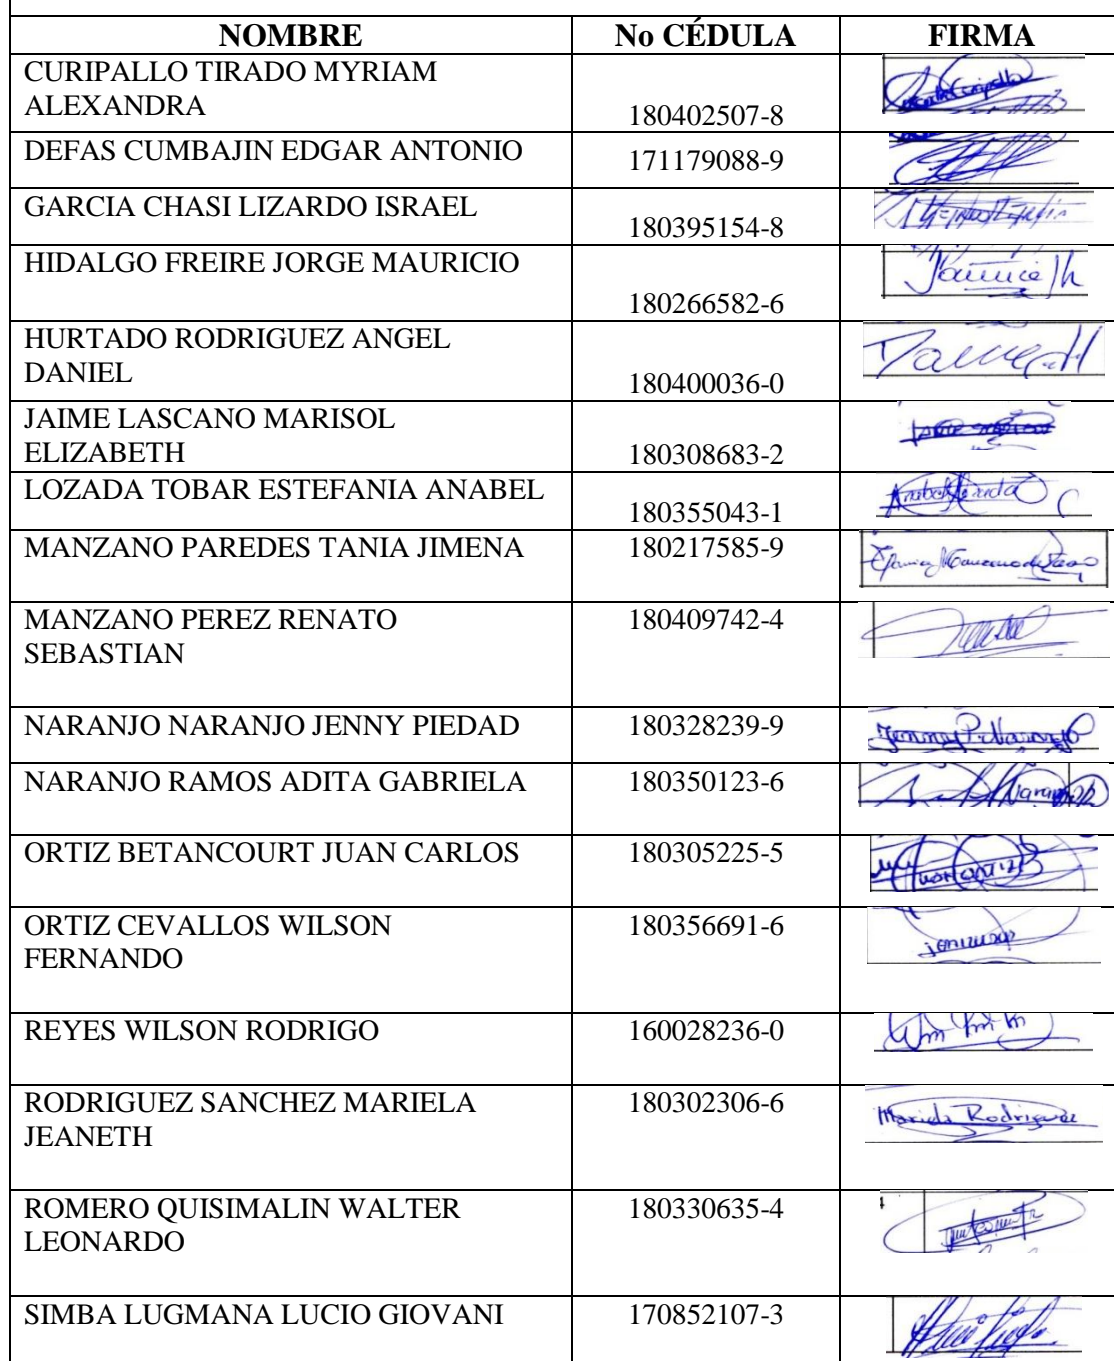 NOMBRE No CÉDULA FIRMA
CURIPALLO TIRADO MYRIAM
ALEXANDRA
180402507-8
DEFAS CUMBAJIN EDGAR ANTONIO 171179088-9
GARCIA CHASI LIZARDO ISRAEL
180395154-8
HIDALGO FREIRE JORGE MAURICIO
180266582-6
HURTADO RODRIGUEZ ANGEL
DANIEL
180400036-0
JAIME LASCANO MARISOL
ELIZABETH 180308683-2
LOZADA TOBAR ESTEFANIA ANABEL
180355043-1
MANZANO PAREDES TANIA JIMENA 180217585-9
MANZANO PEREZ RENATO 180409742-4
SEBASTIAN
NARANJO NARANJO JENNY PIEDAD 180328239-9 Jenny P. Naranjo
NARANJO RAMOS ADITA GABRIELA 180350123-6
ORTIZ BETANCOURT JUAN CARLOS 180305225-5
ORTIZ CEVALLOS WILSON 180356691-6
FERNANDO
REYES WILSON RODRIGO 160028236-0
RODRIGUEZ SANCHEZ MARIELA 180302306-6 Mariela Rodriguez
JEANETH
ROMERO QUISIMALIN WALTER 180330635-4
LEONARDO
SIMBA LUGMANA LUCIO GIOVANI 170852107-3